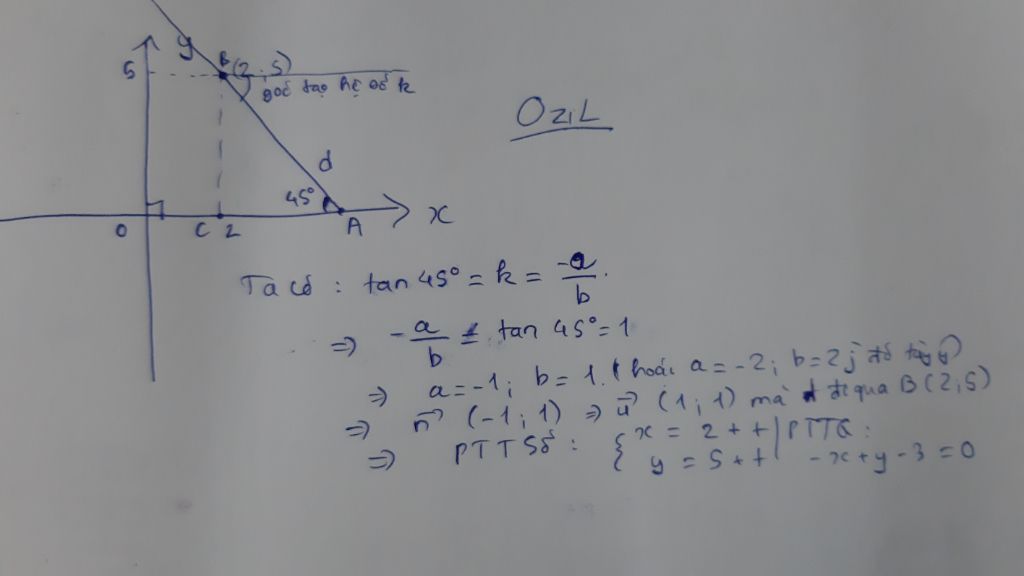 y
5
B(2;5)
góc tạo hệ số k
OziL
d
45°
O
C 2
A
x
Ta có : tan 45° = k = -a/b.
=> -a/b = tan 45° = 1
=> a = -1; b = 1. (hoặc a = -2; b = 2 j đó tùy ý)
=> n⃗ (-1; 1) => u⃗ (1; 1) mà d đi qua B(2;5)
=> PTTSố : { x = 2 + t | PTTQ :
y = 5 + t -x + y - 3 = 0